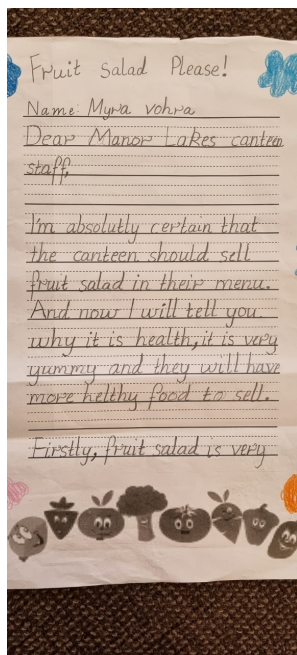 Fruit Salad Please!
Name: Myra vohra
Dear Manor Lakes canteen
staff,
I'm absolutly certain that
the canteen should sell
fruit salad in their menu.
And now I will tell you
why it is health, it is very
yummy and they will have
more helthy food to sell.
Firstly, fruit salad is very